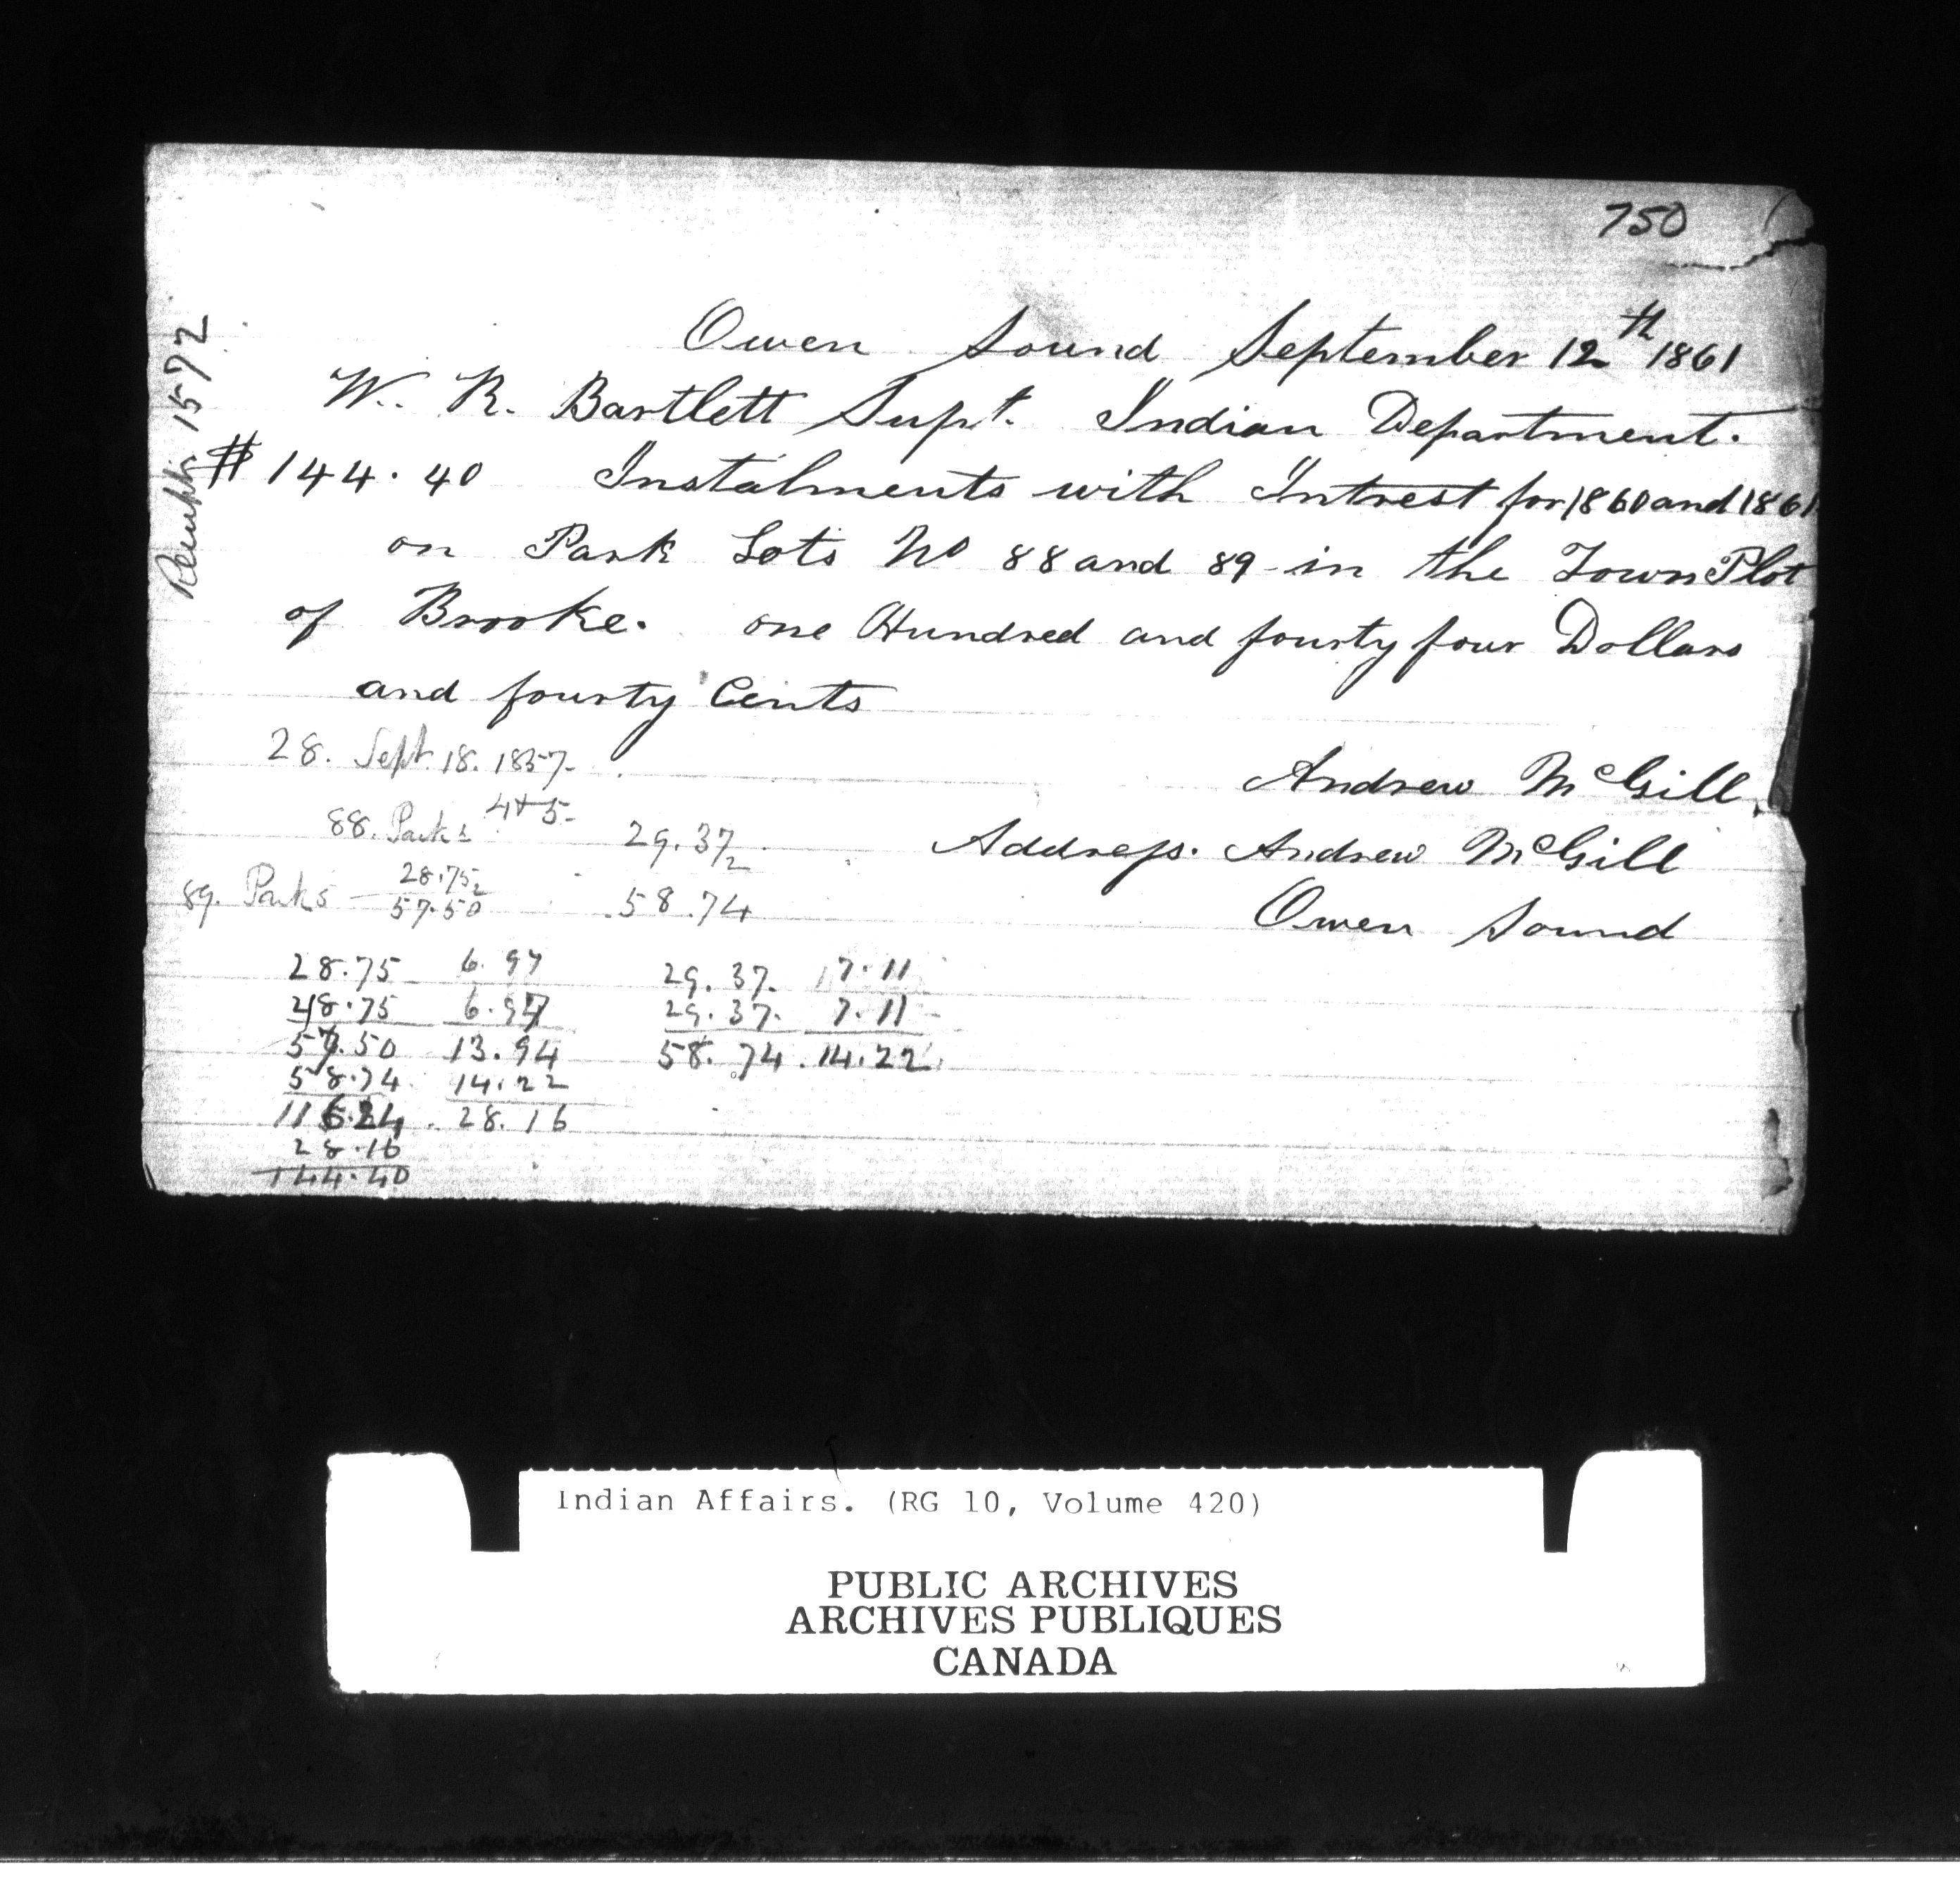 750
Owen Sound September 12th 1861
W. R. Bartlett Supt. Indian Department.
$144.40 Instalments with Intrest for 1860 and 1861
on Park Lots No 88 and 89 in the Town Plot
of Brooke. one Hundred and fourty four Dollars
and fourty Cents
Andrew McGill.
Address. Andrew McGill
Owen Sound
1572
28. Sept. 18. 1857.
4 + 5
88. Parks 29.37
2
89. Parks 28.75 58.74
2
57.50
28.75 6.97 29.37. 7.11
28.75 6.97 29.37. 7.11
57.50 13.94 58.74 14.22
58.74 14.22
116.24 28.16
28.16
144.40
Indian Affairs. (RG 10, Volume 420)
PUBLIC ARCHIVES
ARCHIVES PUBLIQUES
CANADA